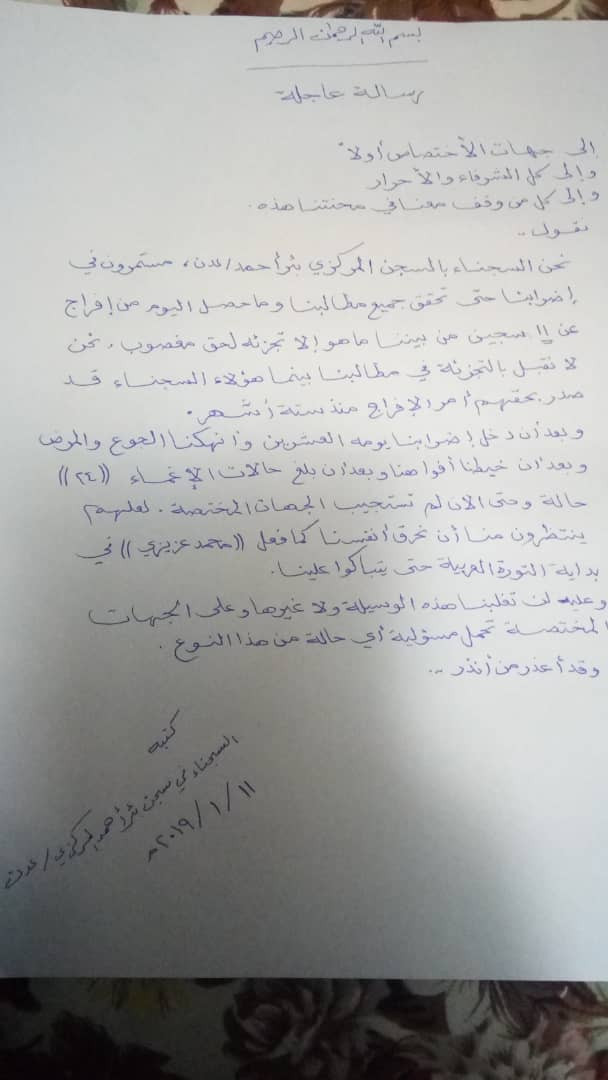 بسم الله الرحمن الرحيم
رسالة عاجلة
إلى جهات الأختصاص أولاً
وإلى كل الشرفاء والأحرار
وإلى كل من وقف معنا في محنتنا هذه.
نقول..
نحن السجناء بالسجن المركزي بئر أحمد/عدن، مستمرون في
إضرابنا حتى تحقق جميع مطالبنا وما حصل اليوم من إفراج
عن 11 سجين من بيننا ما هو إلا تجزئه لحق مغصوب. نحن
لا نقبل بالتجزئة في مطالبنا بينما هؤلاء السجناء قد
صدر بحقهم أمر الإفراج منذ ستة أشهر.
وبعد أن دخل إضرابنا يومه العشرين وأنهكنا الجوع والمرض
وبعد أن خيطنا أفواهنا وبعد أن بلغ حالات الإغماء ((٢٤))
حالة وحتى الآن لم تستجيب الجهات المختصة. لعلهم
ينتظرون منا أن نحرق أنفسنا كما فعل ((محمد عزيزي)) في
بداية الثورة العربية حتى يتباكوا علينا.
وعليه لن تغلبنا هذه الوسيلة ولا غيرها وعلى الجهات
المختصة تحمل مسؤلية أي حالة من هذا النوع.
وقد أعذر من أنذر ..
كتبه
السجناء في سجن بئر أحمد المركزي/عدن
٢٠١٩/١/١١م